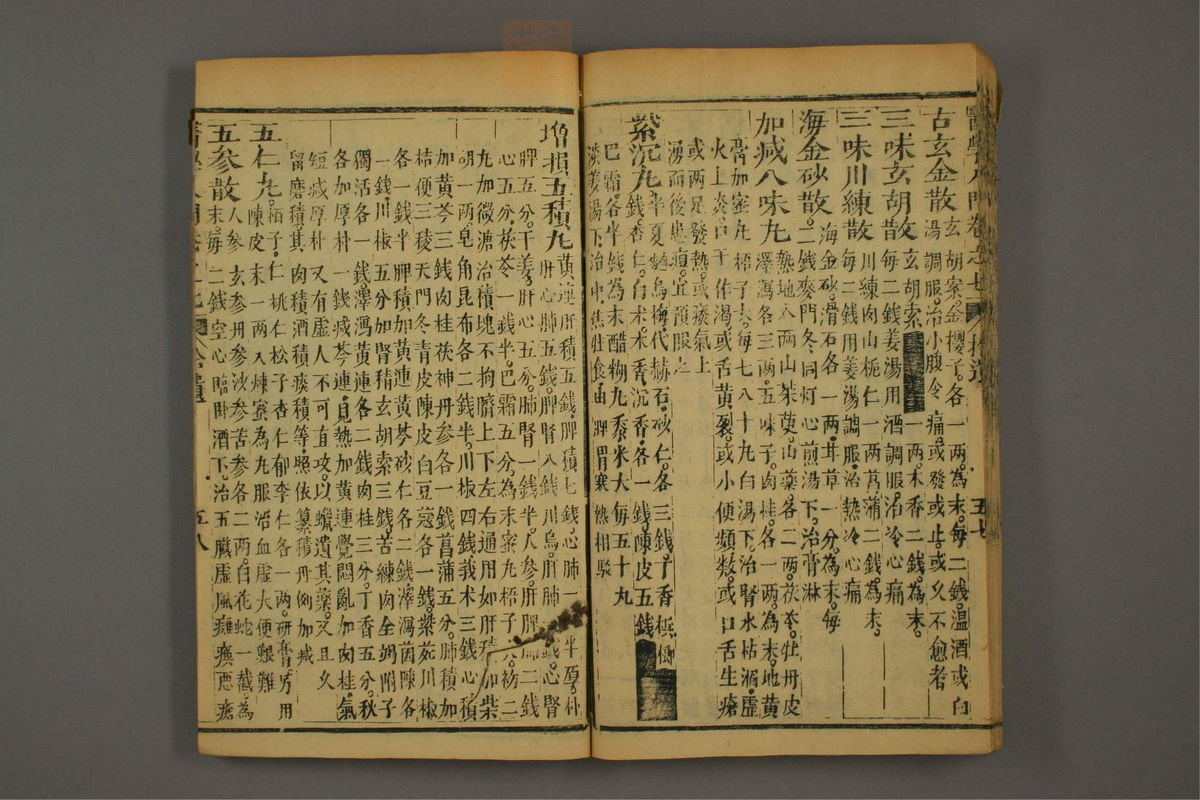 醫學入門卷之七 拾遺 五七
古玄金散 玄胡案金櫻子各一兩為末每二錢温酒或白
湯調服治小腹令痛或發或止或久不愈者
三味玄胡散 玄胡索 一兩木香二錢為末
每二錢姜湯用酒調服治冷心痛
三味川練散 川練肉山梔仁一兩菖蒲二錢為末
每二錢用姜湯調服治熱冷心痛
海金砂散 海金砂滑石各一兩甘草一分為末每
二錢麥門冬同灯心煎湯下治膏淋
加減八味丸 熟地八兩山茱萸山藥各二兩茯苓牡丹皮
澤瀉各三兩五味子肉桂各一兩為末地黄
膏加蜜丸梧子大每七八十丸白湯下治腎水枯涸虛
火上炎口干作渴或舌黄裂或小便頻数或口舌生瘡
或兩足發熱或痰氣上
湧而後患疽宜預服之
紫沉丸 半夏麯烏梅代赫石砂仁各三錢丁香檳榔
錢杏仁白术木香沉香各一錢陳皮五錢
巴霜各半錢為末醋糊丸黍米大每五十丸
淡姜湯下治中焦吐食由脾胃寒熱相駁
增損五積丸 黄連肝積五錢脾積七錢心肺一兩半厚朴
肝心肺五錢脾腎八錢川烏肝肺一錢心腎
脾五分干姜肝心五分肺腎一錢半人參肝脾肺二錢
心五分茯苓一錢半巴霜五分為末蜜丸梧子大初二
丸加微溏治積塊不拘臍上下左右通用如肝積加柴
胡一兩皂角昆布各二錢半川椒四錢莪术三錢心積
加黄芩三錢肉桂茯神丹參各一錢菖蒲五分肺積加
桔梗三稜天門冬青皮陳皮白豆蔻各一錢紫菀川椒
各一錢半脾積加黄連黄芩砂仁各二錢澤瀉茵陳各
一錢川椒五分加腎積玄胡索三錢苦練肉全蝎附子
獨活各一錢澤瀉黄連各二錢肉桂三分丁香五分秋
冬加厚朴一錢減芩連見熱加黄連覺悶亂加肉桂氣
短減厚朴又有虛人不可直攻以蠟遺其藥又且久
留磨積其肉積酒積痰積等照依纂積丹例加減
五仁丸 栢子仁桃仁松子杏仁郁李仁各一兩研膏另用
陳皮末一兩入煉蜜為丸服治血虛大便艱難
五參散 人參玄參丹參沙參苦參各二兩白花蛇一截為
末每二錢空心臨卧酒下治五臟虛風癱瘓悪瘡
醫學入門卷之七 拾遺 五八